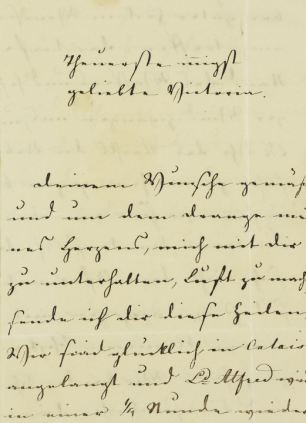 Theuerste innigst
geliebte Victoria.
Deinem Wunsche gemäß
und um dem Drange mei
nes Herzens, mich mit dir
zu unterhalten, Luft zu mach
sende ich dir diese Zeilen
Wir sind glücklich in Calais
angelangt und Ld Alfred wi
in einer 1/4 Stunde wieder